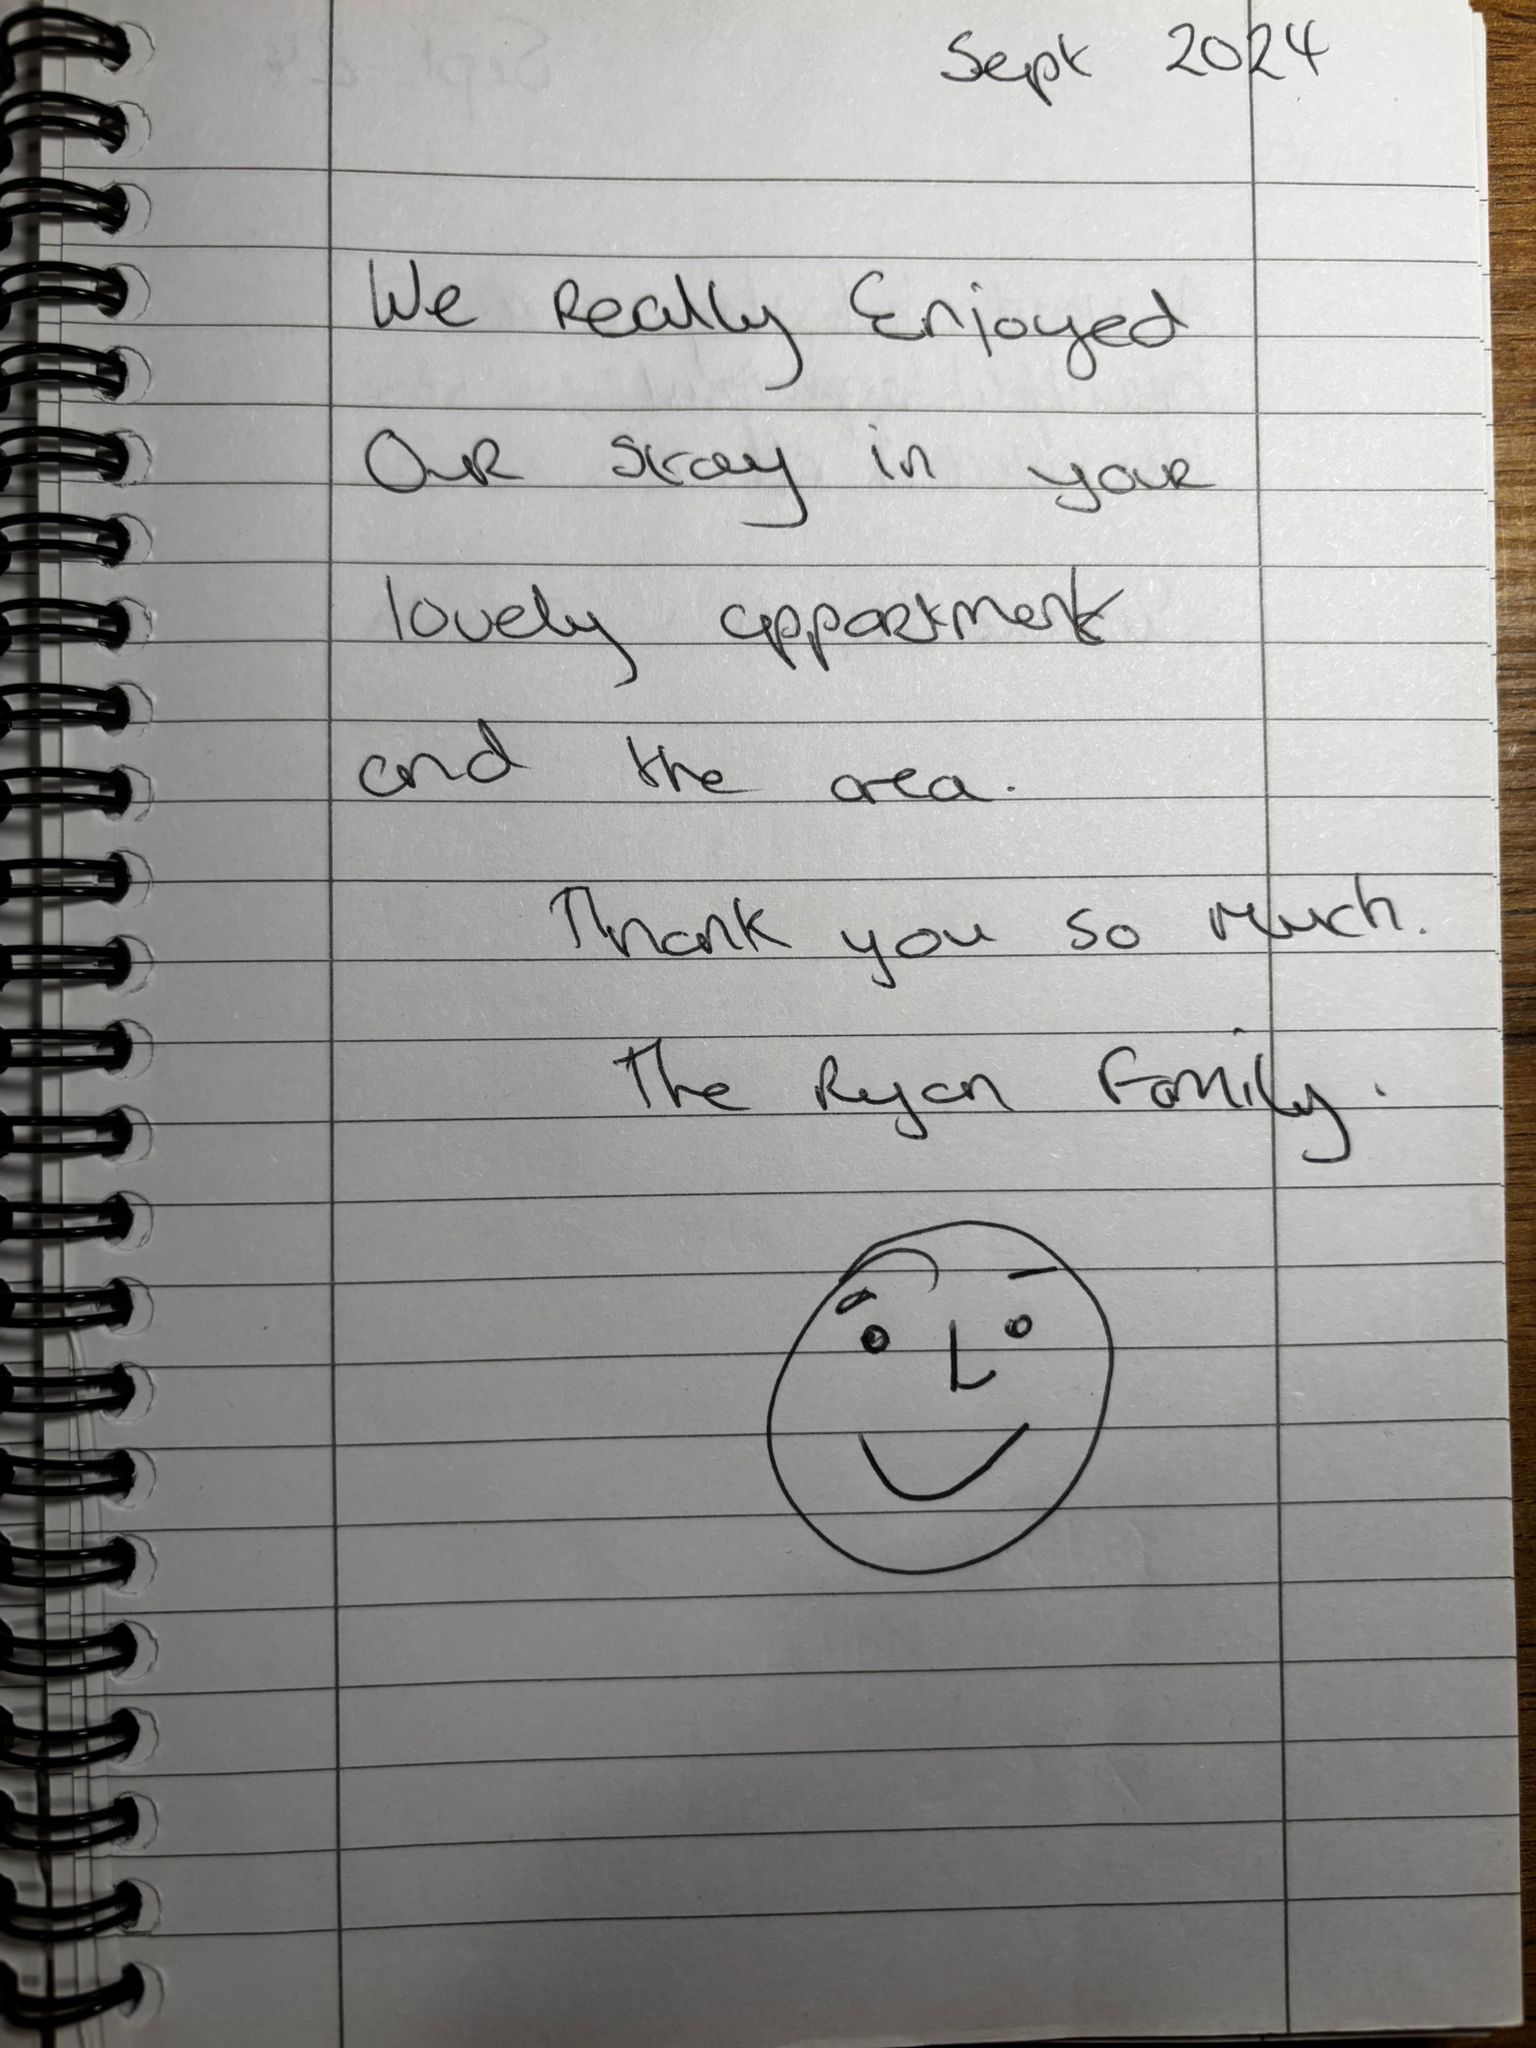 Sept 2024
We Really Enjoyed
Our stay in your
lovely appartment
and the area.
Thank you so much.
The Ryan Family.